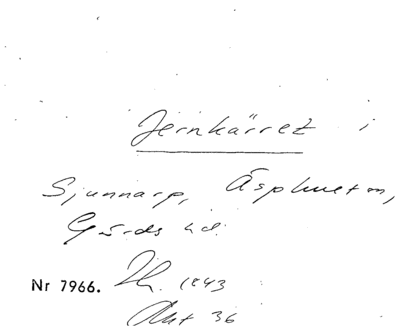 Jernkärret i
Sjunnarp, Äsphult sn,
Gärds hd.
Nr 7966. Th. 1843
Akt 36